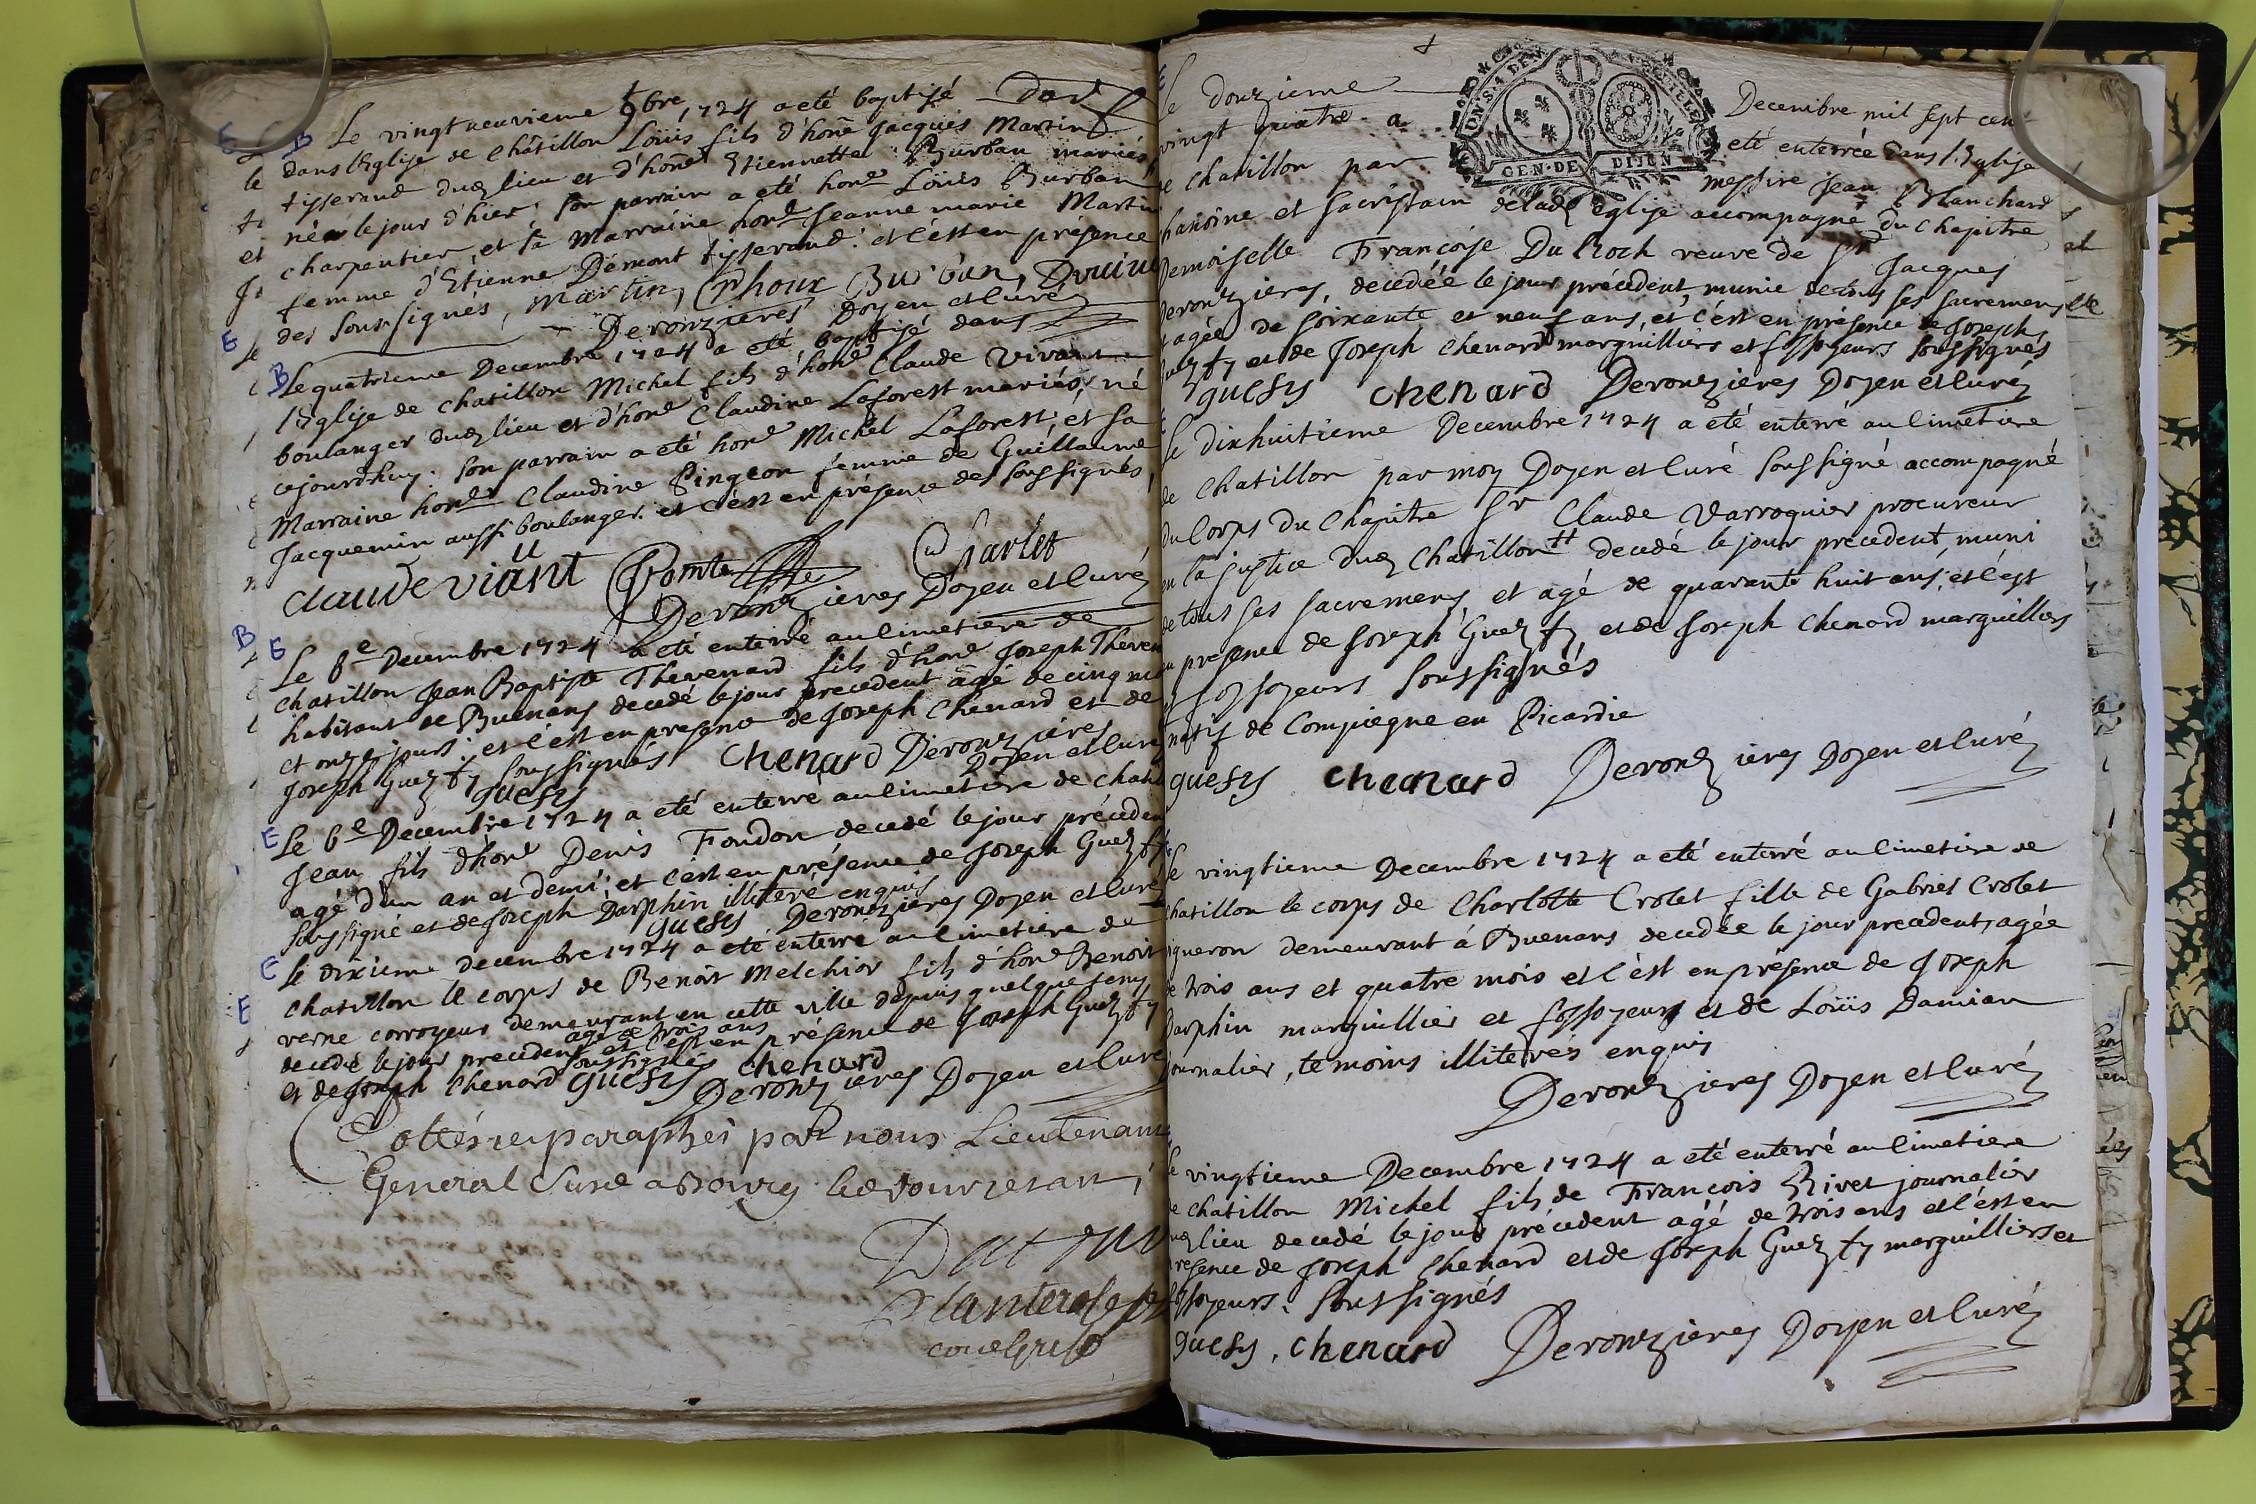 B Le vingt neuvieme 9bre 1724 a eté baptisé
dans l'Eglise de Châtillon Loüis fils d'honē Jacques Martin
tisserand dud lieu et d'honē Etiennette Burban mariés
né le jour d'hier; son parrain a eté honē Loüis Burban
charpentier, et sa Marraine honē Jeanne marie Martin
femme d'Etienne Démont tisserand: et c'est en présence
des soussignés, Martin, Burban,
Deronzieres Doyen et Curé
B Le quatrieme Decembre 1724 a eté baptisé dans
l'Eglise de Chatillon Michel fils d'honē Claude Vivant
boulanger dud lieu et d'honē Claudine Laforest mariés, né
cejourdhuy: son parrain a eté honē Michel Laforest, et sa
Marraine honē Claudine Pingeon femme de Guillaume
Jacquemin aussi boulanger. et c'est en présence des soussignés,
claude viant Comte Charlet
Deronzieres Doyen et Curé
E Le 6e Decembre 1724 a eté enterré au Cimetiere de
Chatillon Jean Baptiste Thevenard fils d'honē Joseph Theven
habitant de Buenans decedé le jour precedent agé de cinq
et onze jours: et c'est en presence de Joseph Chenard et de
Joseph Guezty soussignés Chenard Deronzieres
guesty Doyen et Curé
E Le 6e Decembre 1724 a eté enterré au Cimetiere de Chati
Jean fils d'honē Denis Fondon decedé le jour précéden
agé d'un an et demi; et c'est en présence de Joseph Guezty
soussigné et de Joseph Darphin illiteré enquis
guesty Deronzieres Doyen et Curé
E Le dixieme decembre 1724 a eté enterré au Cimetiere de
Chatillon le corps de Benoit Melchior fils d'honē Benoit
verne corroyeur demeurant en cette ville depuis quelque tems
agé de trois ans
decedé le jour precedent et c'est en présence de Joseph Guezty
et de Joseph Chenard soussignés guesty chenard
Deronzieres Doyen et Curé
Cottés et paraphés par nous Lieutenant
General Civil a Bourg
Le douzieme Decembre mil sept cen
vingt quatre a eté enterrée dans l'Eglise
de Chatillon par messire Jean Blanchard
chanoine et sacristain de lad église accompagné du Chapitre
Demoiselle Françoise Du Roch veuve de Sr Jacques
Deronzieres, decedée le jour précédent, munie de tous ses sacremens
agée de soixante et neuf ans, et c'est en présence de Joseph
Guezty et de Joseph Chenard marguilliers et fossoyeurs soussignés
guesty chenard Deronzieres Doyen et Curé
Le dixhuitieme Decembre 1724 a eté enterré au Cimetiere
de Chatillon par moy Doyen et Curé soussigné accompagné
du Corps du Chapitre Sr Claude Varroquier procureur
en la justice dud Chatillon tt decedé le jour precedent, muni
de tous ses sacremens, et agé de quarante huit ans, et c'est
en presence de Joseph Guezty, et de Joseph Chenard marguilliers
et fossoyeurs soussignés
natif de Compiegne en Picardie
guesty chenard Deronzieres Doyen et Curé
Le vingtieme Decembre 1724 a eté enterré au Cimetiere de
Chatillon le corps de Charlotte Crolet fille de Gabriel Crolet
vigneron demeurant á Buenans decedée le jour precedent, agée
de trois ans et quatre mois et c'est en présence de Joseph
Darphin marguillier et fossoyeur et de Loüis Damian
journalier, temoins illiterés enquis
Deronzieres Doyen et Curé
Le vingtieme Decembre 1724 a eté enterré au Cimetiere
de Chatillon Michel fils de François Rivet journalier
dud lieu decedé le jour précedent agé de trois ans et c'est en
presence de Joseph Chenard et de Joseph Guezty marguilliers et
fossoyeurs. soussignés
guesty, chenard Deronzieres Doyen et Curé
GEN·DE DIJON